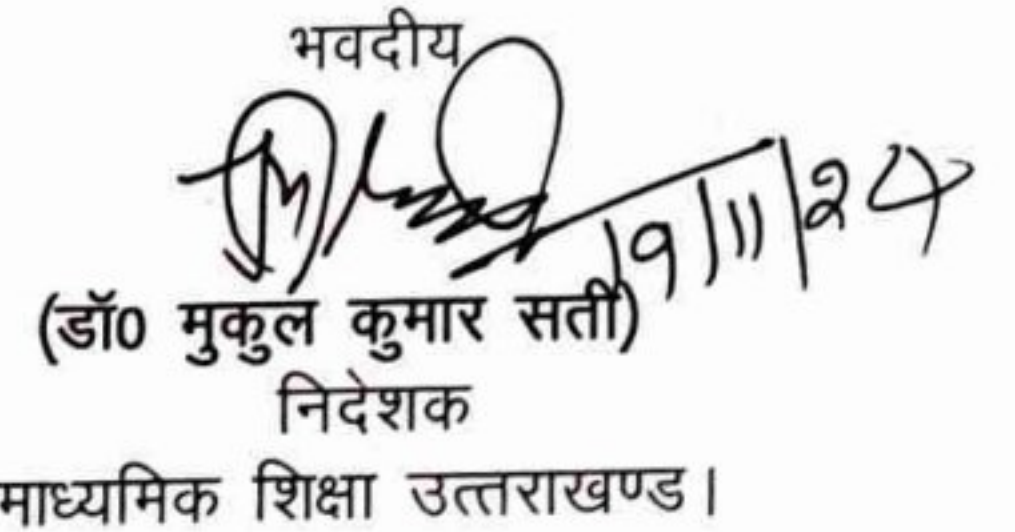 भवदीय
19/11/24
(डॉ0 मुकुल कुमार सती)
निदेशक
माध्यमिक शिक्षा उत्तराखण्ड।